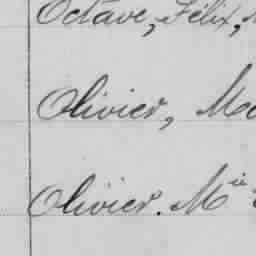 Octave, Félix,
Olivier, Ma
Olivier. M